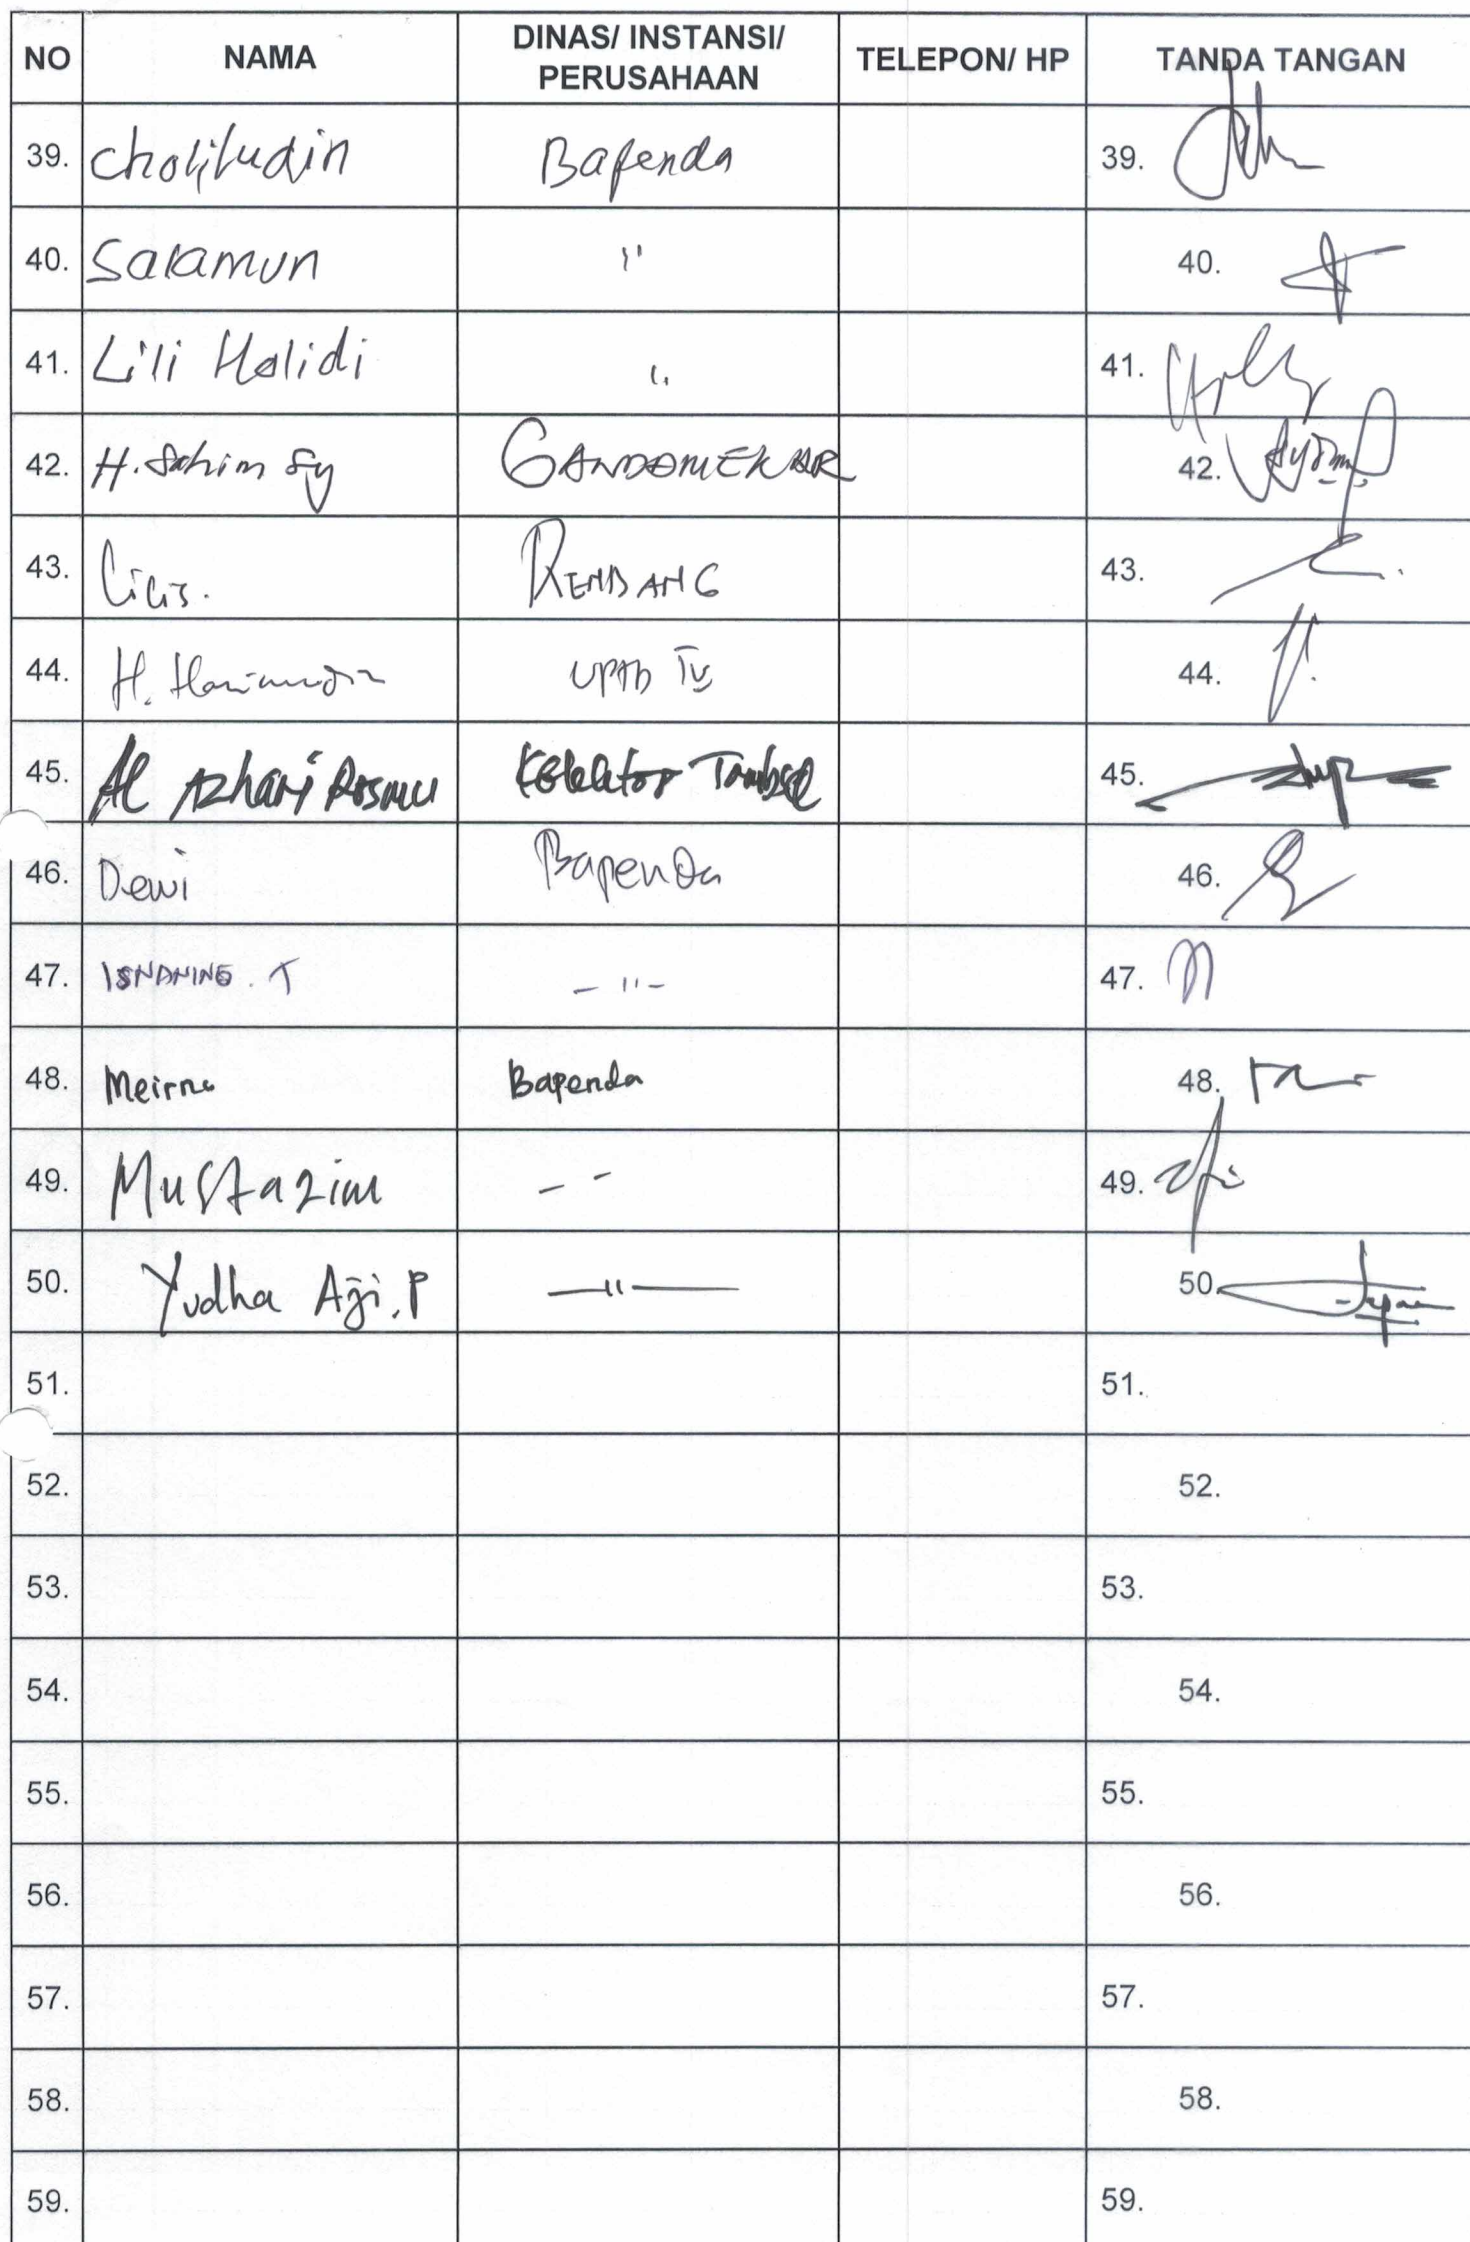 NO NAMA DINAS/ INSTANSI/ PERUSAHAAN TELEPON/ HP TANDA TANGAN
39. Bapenda 39.
40. Salamun " 40.
41. Lili Halidi " 41.
42. H. Sahim Sy GANDAMEKAR 42.
43. 43.
44. H. UPTD IV 44.
45. Al Azhari Kolektor Tambsel 45.
46. Dewi Bapenda 46.
47. ISNANING. T - " - 47.
48. Meirna Bapenda 48.
49. Mustazim - - 49.
50. Yudha Aji. P — " — 50.
51. 51.
52. 52.
53. 53.
54. 54.
55. 55.
56. 56.
57. 57.
58. 58.
59. 59.